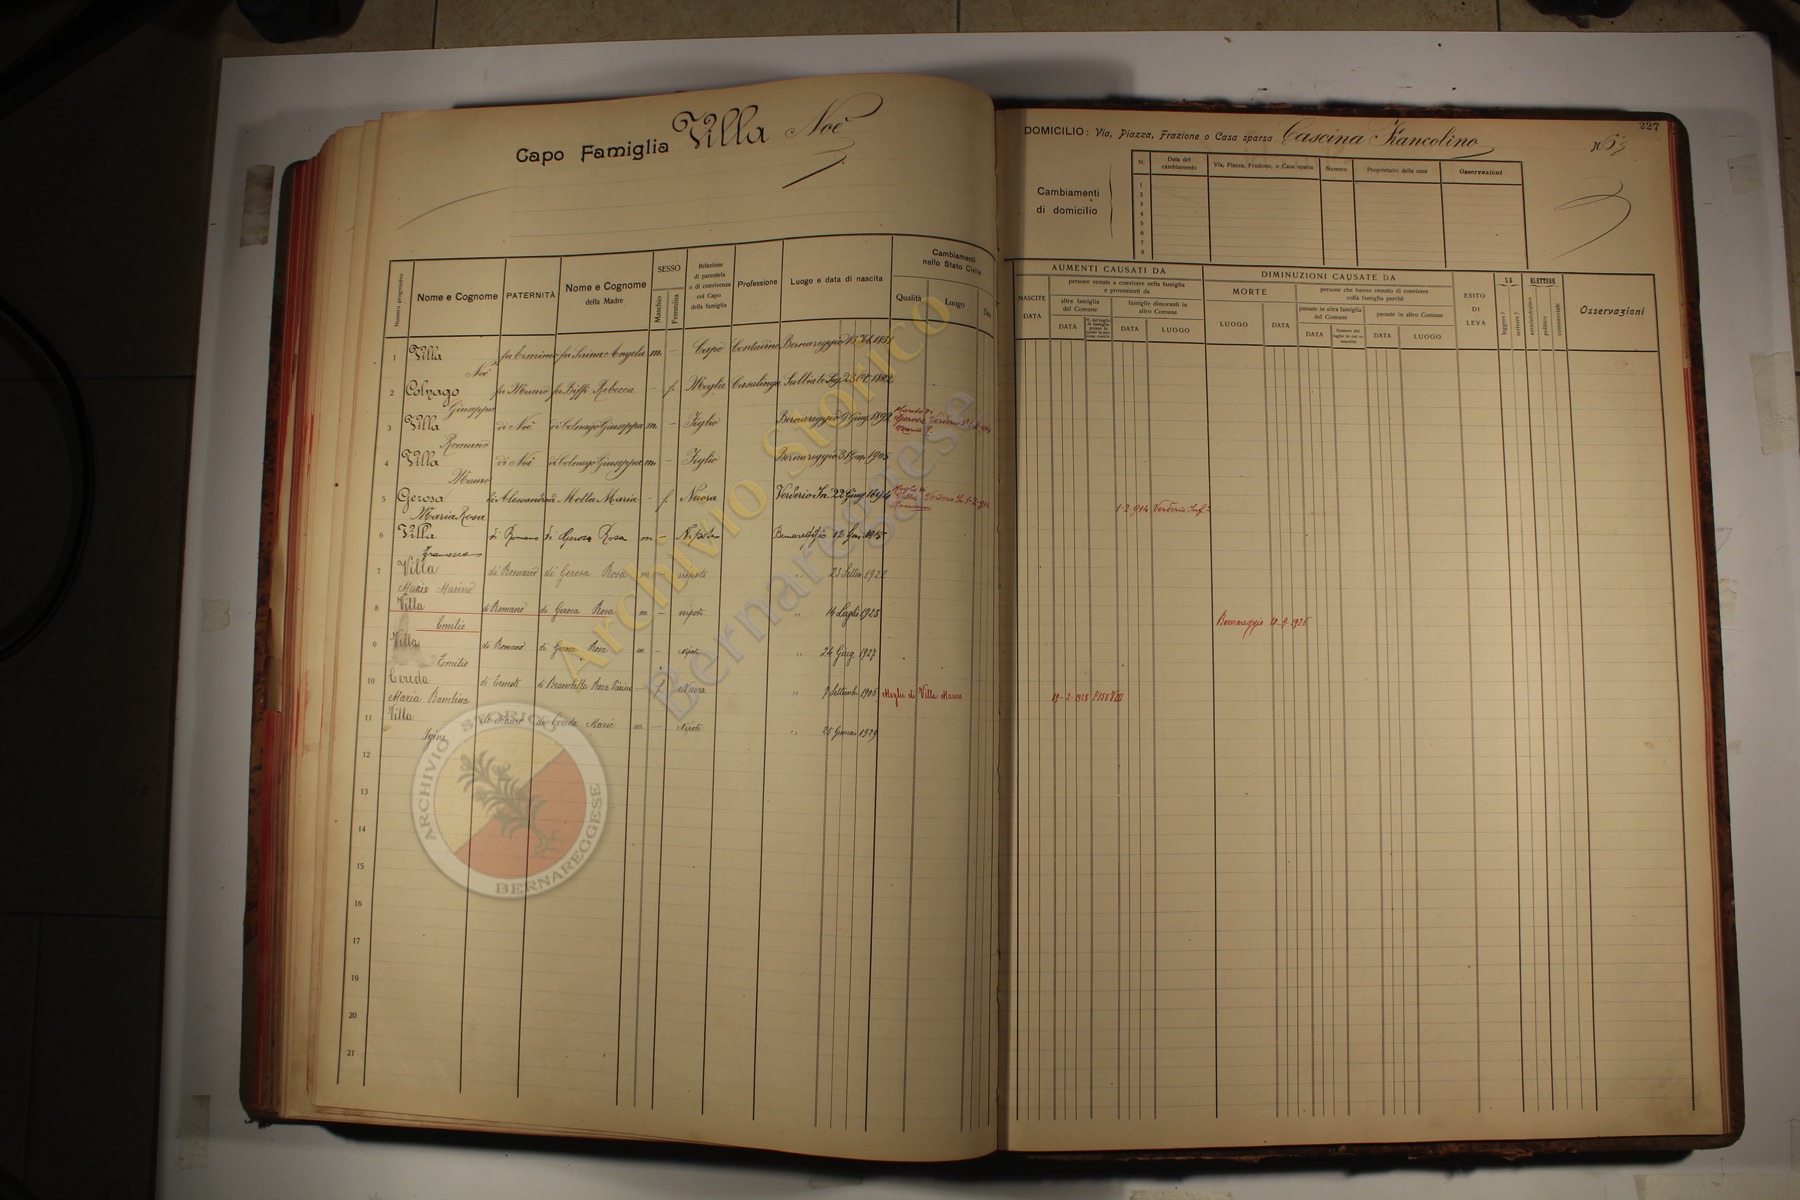 Capo Famiglia Villa Noè
DOMICILIO: Via, Piazza, Frazione o Casa sparsa Cascina Francolino N. 63
227
Cambiamenti di domicilio
N. Data del cambiamento Via, Piazza, Frazione, o Casa sparsa Numero Proprietario della casa Osservazioni
1
2
3
4
5
6
7
8
Numero progressivo Nome e Cognome PATERNITÀ Nome e Cognome della Madre SESSO Maschio Femmina Relazione di parentela o di convivenza col Capo della famiglia Professione Luogo e data di nascita Cambiamenti nello Stato Civile Qualità Luogo Data
NASCITE DATA AUMENTI CAUSATI DA persone venute a convivere nella famiglia e provenienti da altra famiglia del Comune DATA famiglie dimoranti in altro Comune DATA LUOGO
DIMINUZIONI CAUSATE DA MORTE LUOGO DATA persone che hanno cessato di convivere colla famiglia perchè passate in altra famiglia del Comune DATA passate in altro Comune DATA LUOGO
ESITO DI LEVA SA leggere? scrivere? ELETTORE amministrativo politico commerciale Osservazioni
1 Villa Noè fu Erminio fu Sirina Angela m. – Capo Contadino Bernareggio 15 1851
2 Colnago Giuseppa fu Mauro fu Biffi Rebecca – f. Moglie Casalinga Sulbiate
3 Villa Romano di Noè di Colnago Giuseppa m – Figlio Bernareggio 9 Giug. 1892 Marito di Gerosa Maria R. Verderio
4 Villa Mauro di Noè di Colnago Giuseppa m – Figlio Bernareggio 3 1905
5 Gerosa Maria Rosa di Alessandro di Molla Maria – f Nuora Verderio In. 22 Giug 1894 Moglie di Villa Romano Verderio In. 1-2-914 1-2-914 Verderio Infre
6 Villa Francesco di Romano di Gerosa Rosa m – Nipote Bernareggio 12 Gen. 1915
7 Villa Mario Marino di Romano di Gerosa Rosa m – nipote " 23 Settem 1922
8 Villa Emilio di Romano di Gerosa Rosa m – nipote " 14 Luglio 1925 Bernareggio 10-9-1926
9 Villa Emilio di Romano di Gerosa Rosa m – nipote " 24 Giug 1927
10 Cereda Maria Bambina di Ernesto di Brambilla Rosa – f Nuora " 7 Settembre 1905 Moglie di Villa Mauro
11 Villa di Mauro di Cereda Maria m – Nipote " 25 Gennaio 1929
12
13
14
15
16
17
19
20
21
Archivio Storico
Bernareggese
ARCHIVIO STORICO
BERNAREGGESE